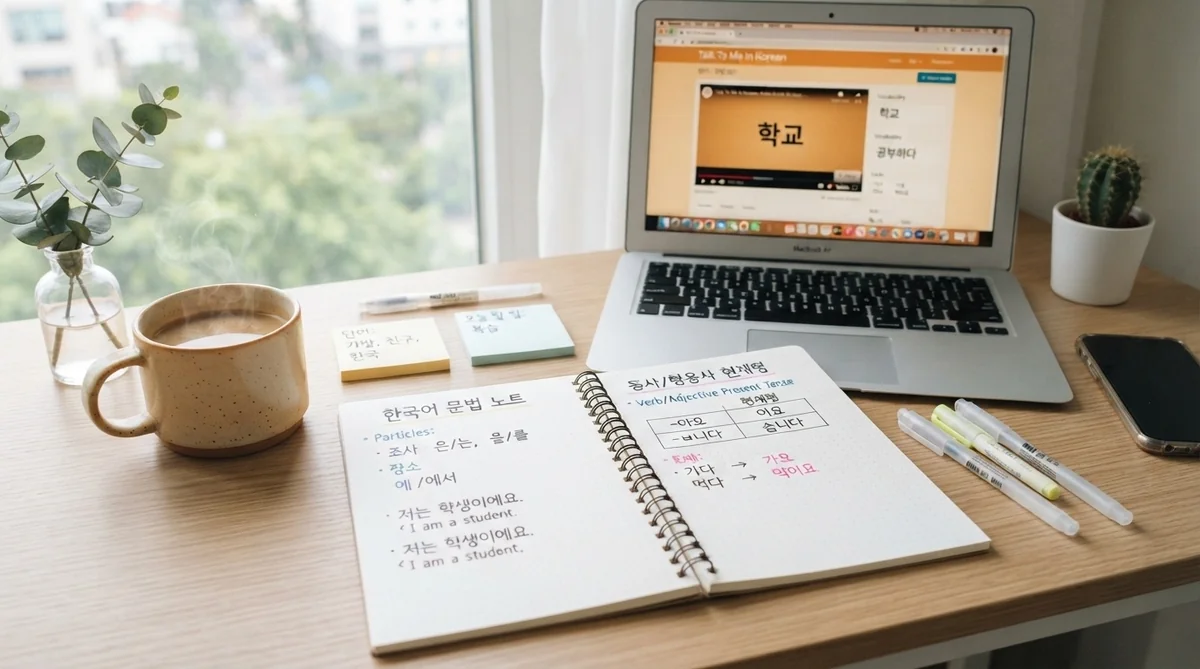 한국어 문법 노트
• Particles:
• 조사 은/는, 을/를
• 장소
에/에서
• 저는 학생이에요.
< I am a student.
• 저는 학생이에요.
< I am a student.
동사/형용사 현재형
• Verb/Adjective Present Tense
현재형
-아요 이요
-ㅂ니다 습니다
• 기다 → 가요
먹다 → 먹이요
단어:
가방, 친구,
한국
복습
Talk To Me In Korean
학교
학교
공부하다
MacBook Air